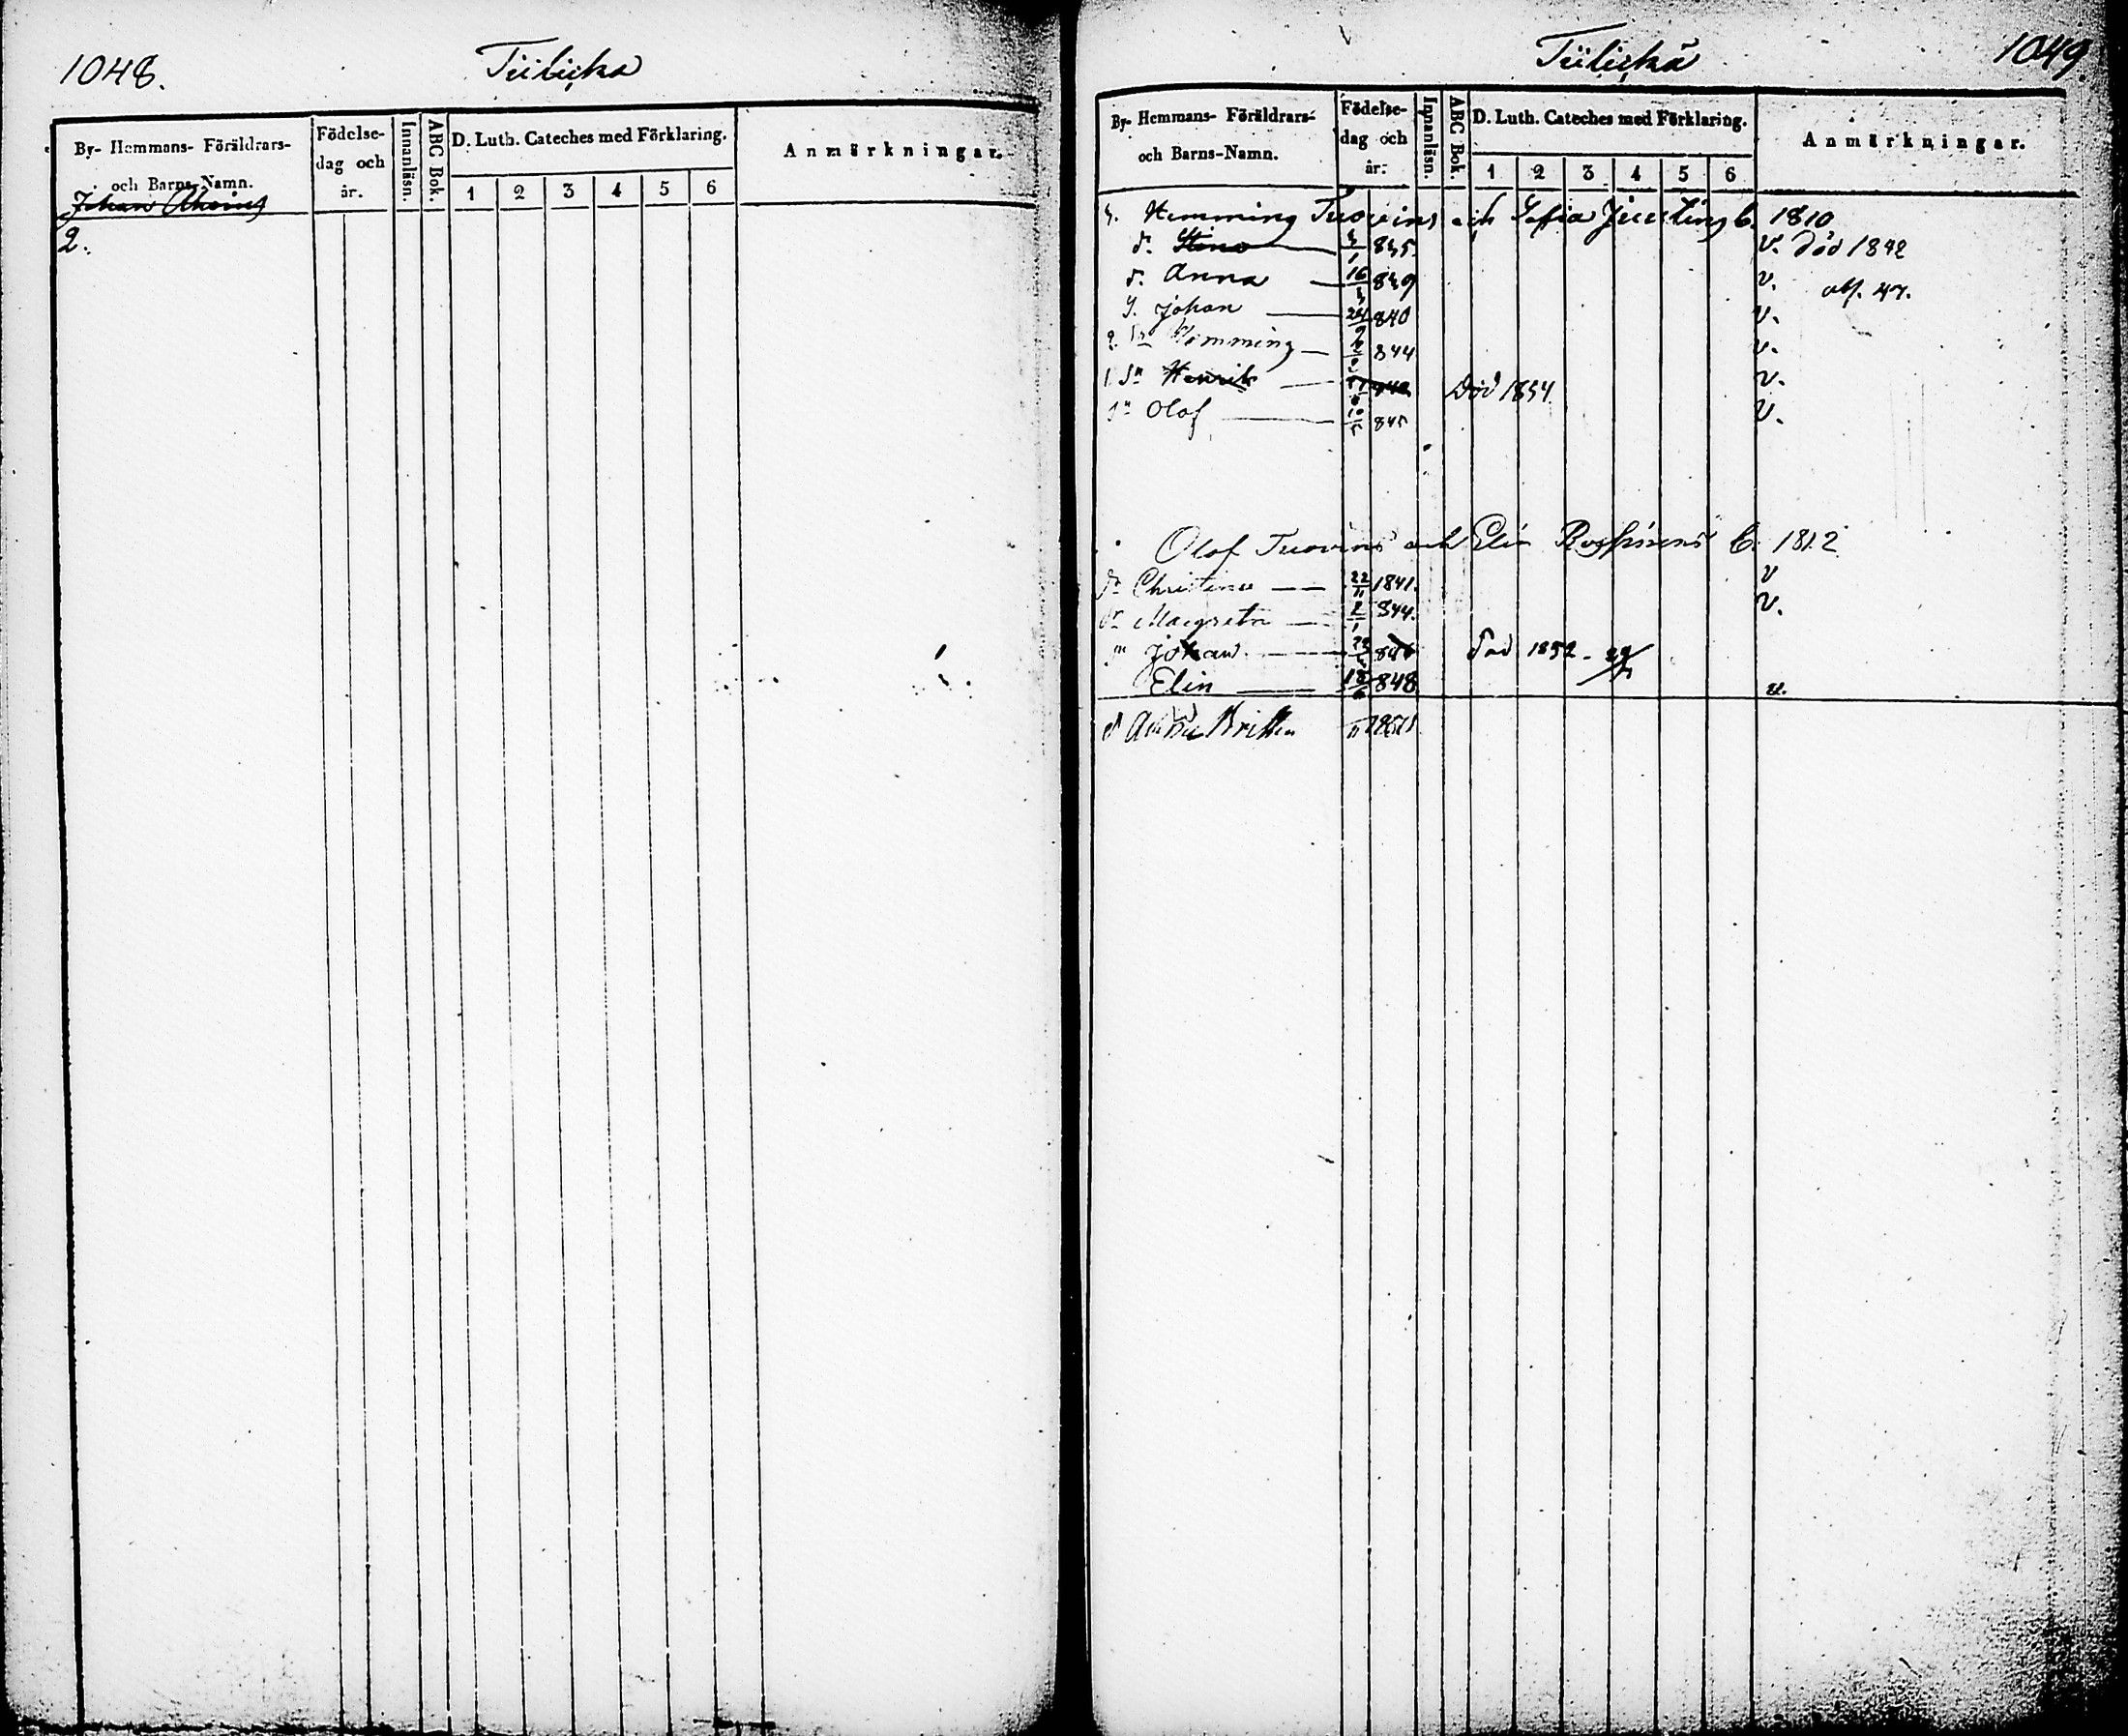 1048.
Tiilicka
By- Hemmans- Föräldrars-
och Barns-Namn.
Födelse-
dag och
år.
Innanläsn.
ABC Bok.
D. Luth. Cateches med Förklaring.
1 2 3 4 5 6
Anmärkningar.
Johan
2.
Tiilickä
1049.
By- Hemmans- Föräldrars-
och Barns-Namn.
Födelse-
dag och
år.
Innanläsn.
ABC Bok.
D. Luth. Cateches med Förklaring.
1 2 3 4 5 6
Anmärkningar.
Hemming Tuovins och Sofia 1810
d. Stina 835 v. död 1842
d. Anna 16 839 v. 47.
Johan 24/9 840 v.
Hemming 844 v.
Sn Henrik död 1854 v.
Sn Olof 10/5 845 v.
Olof Tuovins och Elin 1812
dr Christina 22/11 1841. v
dr Margreta 2/1 844. v.
Johan död 1852
Elin 18/6 848 v.
d Britha